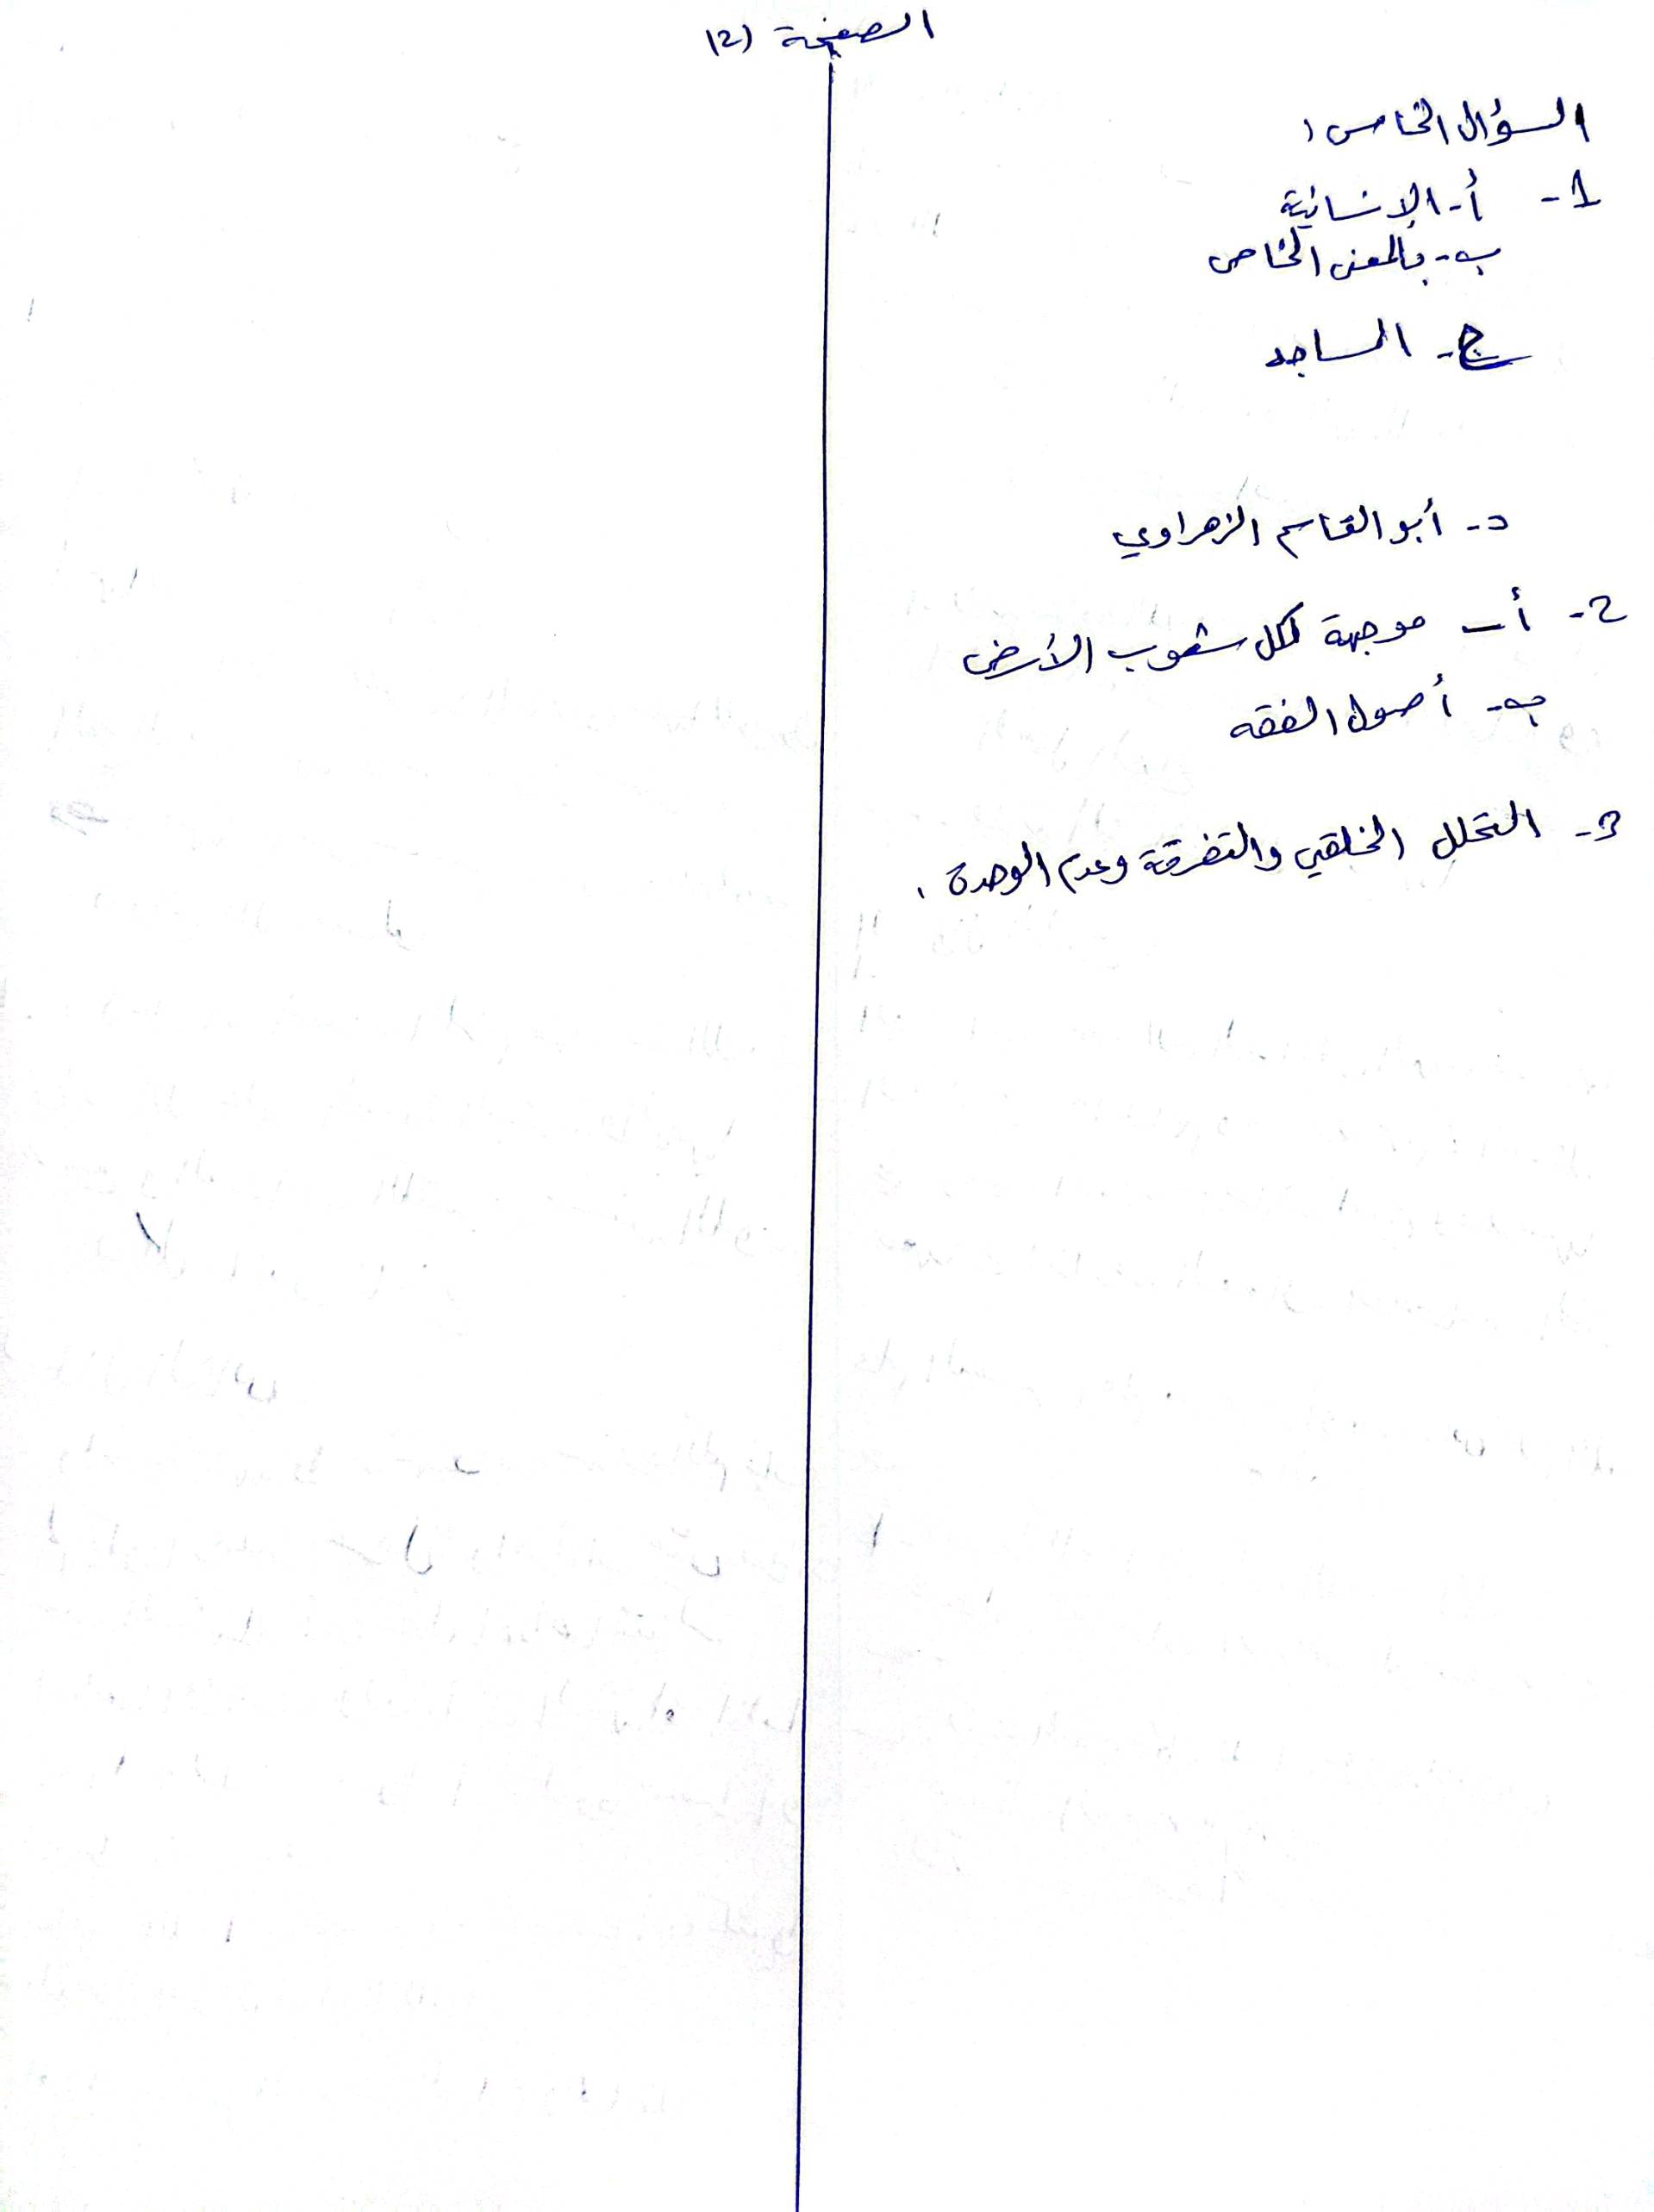 الصفحة (2)
السؤال الخامس:
1- أ- الانسانية
ب- بالمعنى الخاص
ج- المساجد
د- أبو القاسم الزهراوي
2- أ- موجهة لكل شعوب الأرض
ب- أصول الفقه
3- التحلل الخلقي والتفرقة وعدم الوحدة .